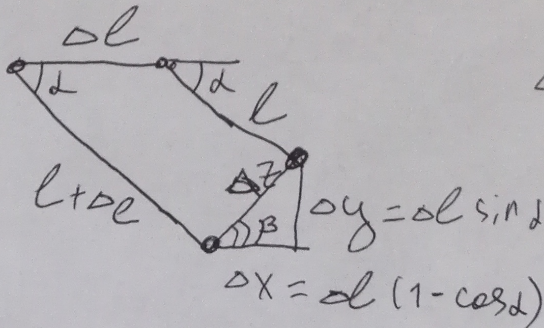 Δl
α α
l
l+Δl
Δz
β
Δy = Δl sinα
Δx = Δl (1-cosα)